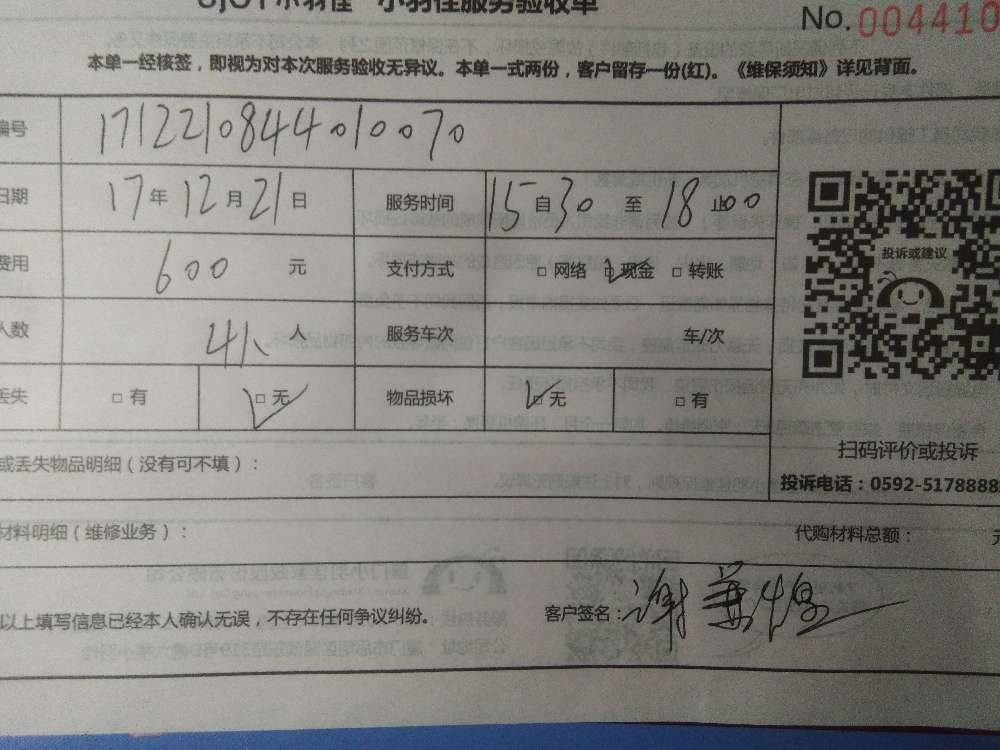 小羽佳 小羽佳服务验收单
No. 004410
本单一经核签，即视为对本次服务验收无异议。本单一式两份，客户留存一份(红)。《维保须知》详见背面。
编号 171221084401 0070
日期 17年12月21日 服务时间 15自30至18止00
费用 600 元 支付方式 □网络 □现金 □转账
人数 4人 人 服务车次 车/次
丢失 □有 □无 物品损坏 □无 □有
投诉或建议
扫码评价或投诉
投诉电话：0592-5178888
或丢失物品明细（没有可不填）：
材料明细（维修业务）： 代购材料总额： 元
以上填写信息已经本人确认无误，不存在任何争议纠纷。 客户签名：谢